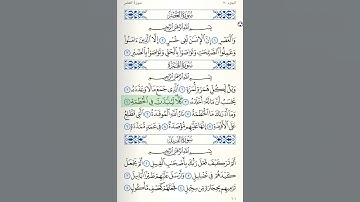 سُورَةُ العَصْرِ
بِسْمِ اللَّهِ الرَّحْمَٰنِ الرَّحِيمِ
وَالْعَصْرِ ١ إِنَّ الْإِنسَانَ لَفِي خُسْرٍ ٢ إِلَّا الَّذِينَ آمَنُوا
وَعَمِلُوا الصَّالِحَاتِ وَتَوَاصَوْا بِالْحَقِّ وَتَوَاصَوْا بِالصَّبْرِ ٣
سُورَةُ الهُمَزَةِ
بِسْمِ اللَّهِ الرَّحْمَٰنِ الرَّحِيمِ
وَيْلٌ لِّكُلِّ هُمَزَةٍ لُّمَزَةٍ ١ الَّذِي جَمَعَ مَالًا وَعَدَّدَهُ ٢
يَحْسَبُ أَنَّ مَالَهُ أَخْلَدَهُ ٣ كَلَّا لَيُنبَذَنَّ فِي الْحُطَمَةِ ٤
وَمَا أَدْرَاكَ مَا الْحُطَمَةُ ٥ نَارُ اللَّهِ الْمُوقَدَةُ ٦ الَّتِي تَطَّلِعُ
عَلَى الْأَفْئِدَةِ ٧ إِنَّهَا عَلَيْهِم مُّؤْصَدَةٌ ٨ فِي عَمَدٍ مُّمَدَّدَةٍ ٩
سُورَةُ الفِيلِ
بِسْمِ اللَّهِ الرَّحْمَٰنِ الرَّحِيمِ
أَلَمْ تَرَ كَيْفَ فَعَلَ رَبُّكَ بِأَصْحَابِ الْفِيلِ ١ أَلَمْ يَجْعَلْ
كَيْدَهُمْ فِي تَضْلِيلٍ ٢ وَأَرْسَلَ عَلَيْهِمْ طَيْرًا أَبَابِيلَ ٣
تَرْمِيهِم بِحِجَارَةٍ مِّن سِجِّيلٍ ٤ فَجَعَلَهُمْ كَعَصْفٍ مَّأْكُولٍ ٥